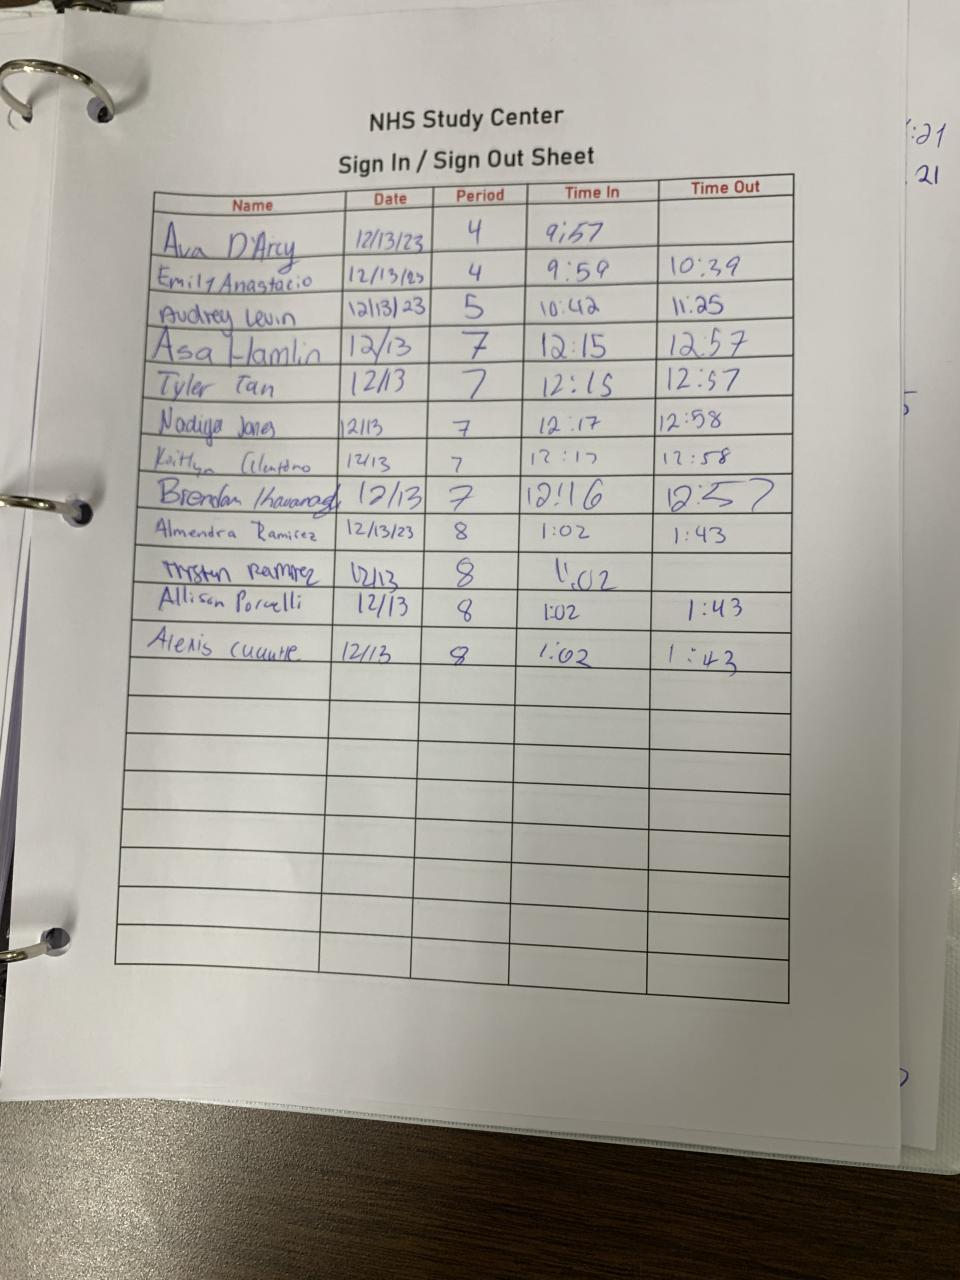 NHS Study Center
Sign In / Sign Out Sheet
Name Date Period Time In Time Out
Ava D'Arcy 12/13/23 4 9:57
Emily Anastacio 12/13/23 4 9:59 10:39
Audrey Levin 12/13/23 5 10:42 11:25
Asa Hamlin 12/13 7 12:15 12:57
Tyler Tan 12/13 7 12:15 12:57
Nadiya Jones 12/13 7 12:17 12:58
Kaitlyn 12/13 7 12:17 12:58
Brendan 12/13 7 12:16 12:57
Almendra Ramirez 12/13/23 8 1:02 1:43
Trysten Ramirez 12/13 8 1:02
Allison Porcelli 12/13 8 1:02 1:43
Alexis 12/13 8 1:02 1:43
:21
21